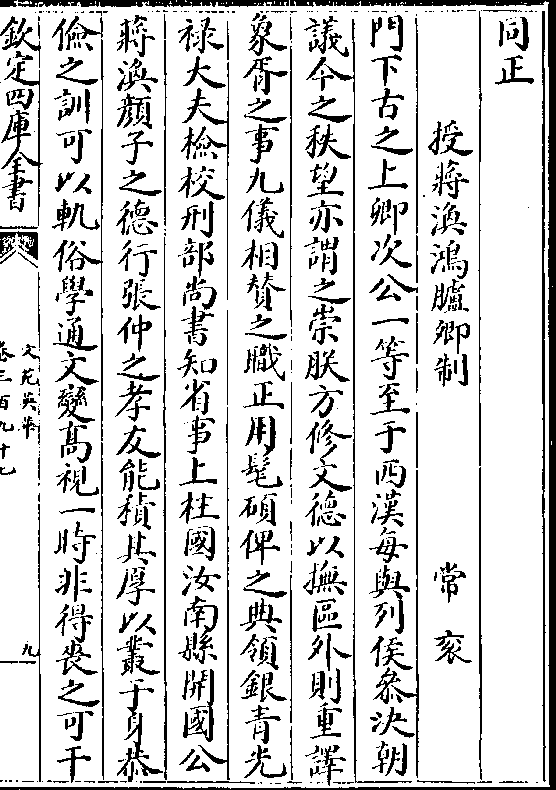 同正
授蔣渙鴻臚卿制 常袞
門下古之上卿次公一等至于西漢每與列侯叅決朝
議今之秩望亦謂之崇朕方修文德以撫區外則重譯
象胥之事九儀相賛之職正用髦碩俾之典領銀青光
禄大夫檢校刑部尚書知省事上柱國汝南縣開國公
蔣渙顔子之德行張仲之孝友能積其厚以叢于身恭
儉之訓可以軌俗學通文變髙視一時非得喪之可干
欽定四庫全書
文苑英華
卷三百九十七
九